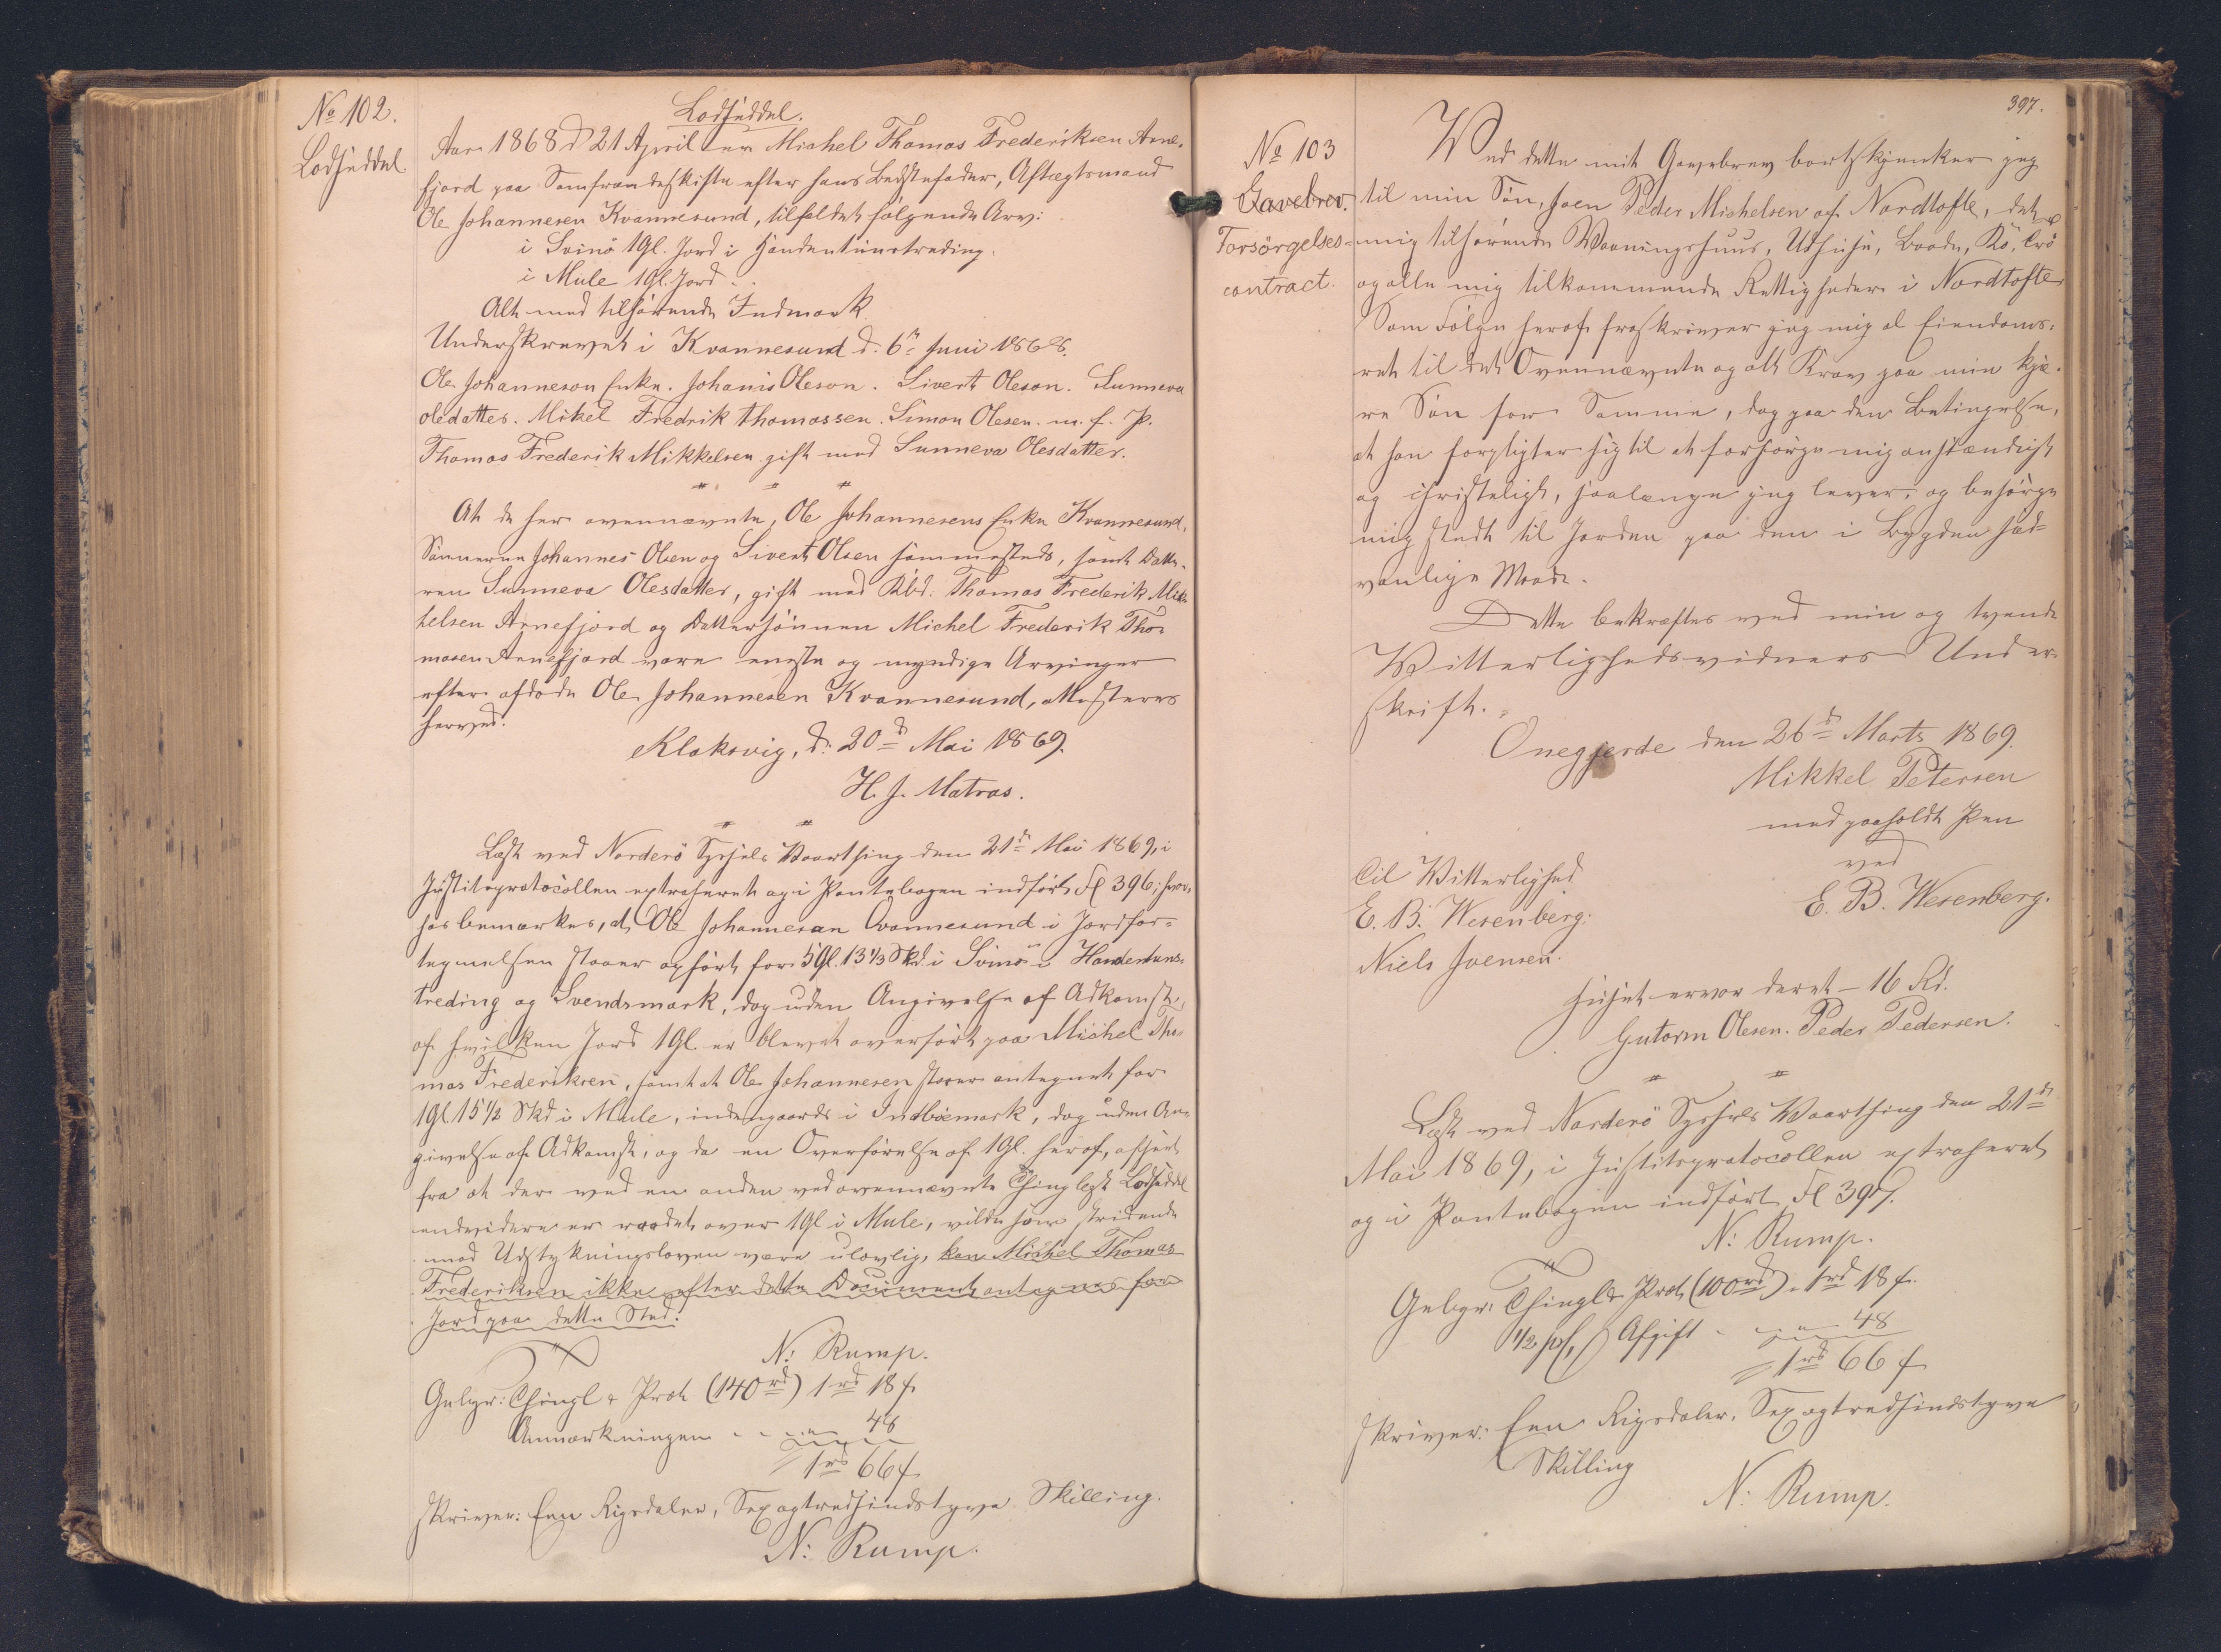 No 102.
Lodseddel
Lodseddel.
Aar 1868 d 21 April er Michel Thomas Frederiksen Arne-
fjord paa Samfrændeskifte efter hans Bedstefader, Aftægtsmand
Ole Johannesen Kvannesund, tilfaldet følgende Arv:
i Svinö 1 Gl. Jord i Handentunstreding.
i Mule 1 Gl. Jord . .
Alt med tilhørende Indmark.
Underskrevet i Kvannesund d. 6te Juni 1868.
Ole Johanneson Enke. Johanis Oleson. Sivert Oleson. Sunneva
Oledatter. Mikel Fredrik thomassen. Simon Olesen. m. f. P.
Thomas Frederik Mikkelsen gift med Sunneva Olesdatter.
At de her ovennævnte, Ole Johannesens Enke Kvannesund,
Sønnerne Johannes Olsen og Sivert Olsen sammesteds, samt Datte-
ren Sunneva Olesdatter, gift med Kbd. Thomas Frederik Mik-
kelsen Arnefjord og Dattersønnen Michel Frederik Tho-
masen Arnefjord vare eneste og myndige Arvinger
efter afdøde Ole Johannesen Kvannesund, attesteres
herved.
Klaksvig, d. 20de Mai 1869.
H. J. Matras.
Læst ved Norderö Syssels Vaarthing den 21de Mai 1869, i
Justitsprotocollen extraheret og i Pantebogen indført Fl 396; hvor-
hos bemærkes, at Ole Johannesen Qvannesund i Jordfor-
tegnelsen staaer opført for 5 Gl. 13 1/3 Skd i Svinö i Handentuns-
treding og Svendsmark, dog uden Angivelse af Adkomst,
af hvilken Jord 1 Gl. er blevet overført paa Michel Tho-
mas Frederiksen, samt at Ole Johannesen staaer antegnet for
1 Gl. 15 1/2 Skd i Mule, indengaards i Indbiemark, dog uden An-
givelse af Adkomst, og da en Overførelse af 1 Gl. heraf, afseet
fra at der ved en anden ved ovennævnte Thing læst Lodseddel
endvidere er raadet over 1 Gl i Mule, vilde som stridende
mod Udstykningsloven være ulovlig, kan Michel Thomas
Frederiksen ikke efter dette Document antegnes for
Jord paa dette Sted.
N: Rump.
Gebyr: Thingl & Prot (140 rd) 1 rd 18 f
Anmærkningen - - - 48
1 rd 66 f
skriver: Een Rigsdaler, Sexogtredsindstyve Skilling.
N: Rump.
397.
No 103
Gavebrev.
Forsörgelses-
contract.
Ved dette mit Gavebrev bortskjenker jeg
til min Søn, Joen Peder Michelsen af Nordtofte, det
mig tilhørende Vaaningshuus, Udhuse, Baade, Kö, Crö
og alle mig tilkommende Rettigheder i Nordtofte
Som Følge heraf fraskriver jeg mig al Eiendoms-
ret til det Ovennævnte og alt Krav paa min kjæ-
re Søn for Samme, dog paa den Betingelse,
at han forpligter sig til at forsørge mig anstændigt
og christeligt, saalænge jeg lever, og besørge
mig stedt til Jorden paa den i Bygden sæd-
vanlige Maade.
Dette bekræftes ved min og tvende
Vitterlighedsvidners Under-
skrift.
Onegjerde den 26de Marts 1869.
Mikkel Petersen
med paaholdt Pen
ved
E. B. Wesenberg.
Til Vitterlighed
E. B. Wesenberg.
Niels Joensen.
Huset ervorderet - 16 Rd.
Gutorm Olesen. Peder Pedersen.
Læst ved Norderö Syssels Vaarthing den 21de
Mai 1869, i Justitsprotocollen extraheret
og i Pantebogen indført Fl 397.
N: Rump.
Gebyr: Thingl & Prot (100 rd) - 1 rd 18 f.
1/2 pCt Afgift - - - 48
1 rd 66 f
skriver: Een Rigsdaler, Sexogtredsindstyve
Skilling
N: Rump.